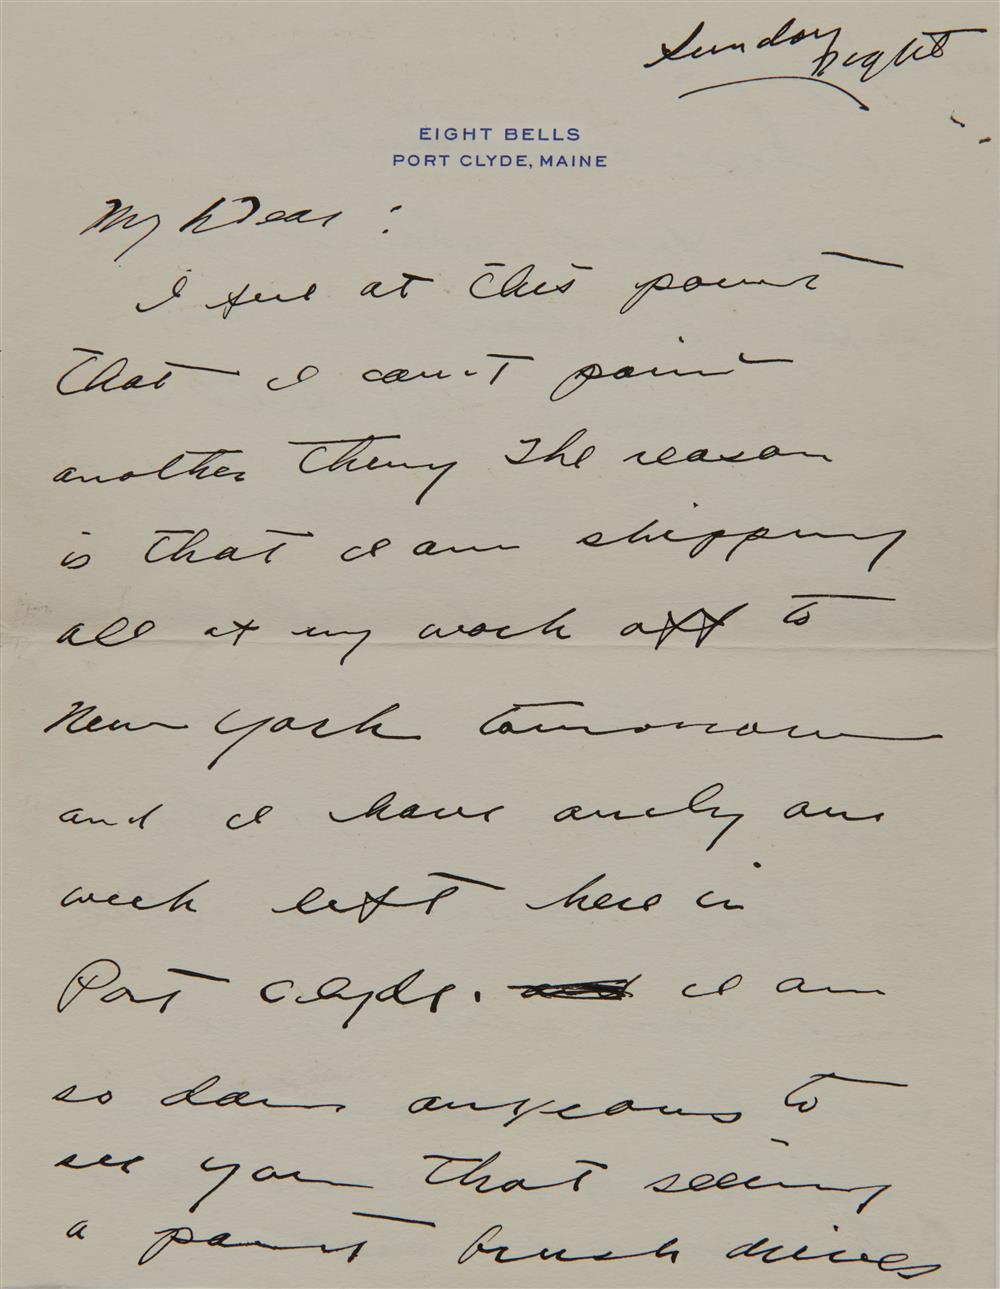 Sunday
night
EIGHT BELLS
PORT CLYDE, MAINE
My Dear :
I feel at this point
that I can't paint
another thing The reason
is that I am shipping
all of my work off to
New York tomorrow
and I have only one
week left here in
Port Clyde. I am
so dam anxeous to
see you that seeing
a paint brush drives